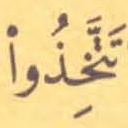 تَتَّخِذُوا۟